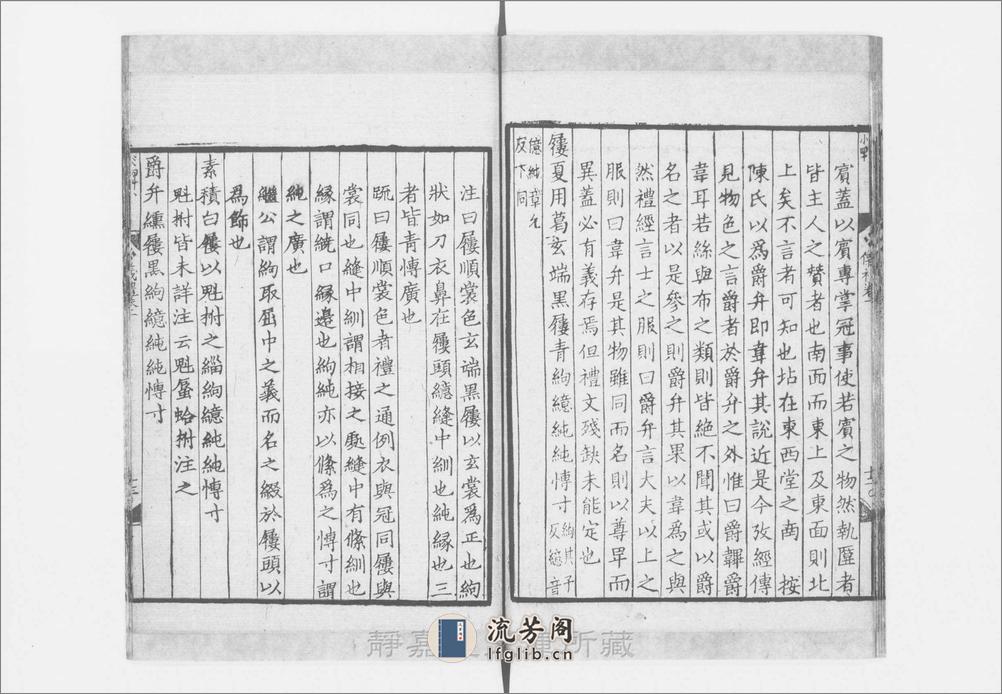 賓蓋以賓專掌冠事使若賓之物然執匴者
皆主人之贊者也南面而東上及東面則北
上矣不言者可知也坫在東西堂之南 按
陳氏以為爵弁即韋弁其說近是今攷經傳
見物色之言爵者於爵弁之外惟曰爵韠爵
韋耳若絲與布之類則皆絶不聞其或以爵
名之者以是參之則爵弁其果以韋為之與
然禮經言士之服則曰爵弁言大夫以上之
服則曰韋弁是其物雖同而名則以尊卑而
異蓋必有義存焉但禮文殘缺未能定也
屨夏用葛玄端黑屨青絇繶純純愽寸絇其于反繶音
億純章允反下同
注曰屨順裳色玄端黑屨以玄裳為正也絇
狀如刀衣鼻在屨頭繶縫中紃也純緣也三
者皆青愽廣也
䟽曰屨順裳色者禮之通例衣與冠同屨與
裳同也縫中紃謂相接之處縫中有絛紃也
緣謂繞口緣邊也絇純亦以絛為之愽寸謂
純之廣也
繼公謂絇取屈中之義而名之綴於屨頭以
為飾也
素積白屨以魁柎之緇絇繶純純愽寸
魁柎皆未詳注云魁蜃蛤柎注之
爵弁纁屨黑絇繶純純愽寸
靜嘉堂文庫所藏
流芳阁
lfglib.cn